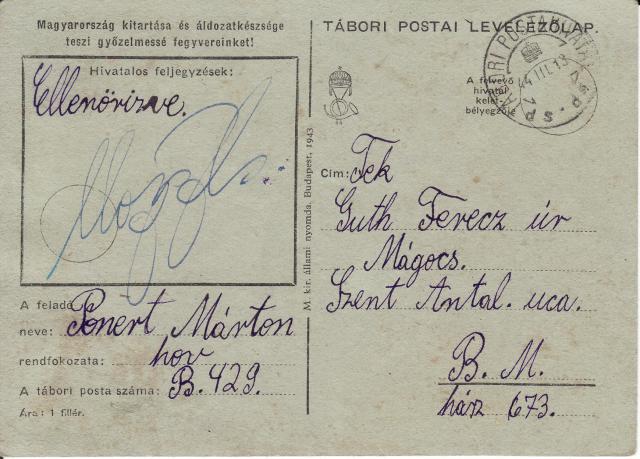 Magyarország kitartása és áldozatkészsége
teszi győzelmessé fegyvereinket!
Hivatalos feljegyzések:
Ellenőrizve.
A feladó
neve: Ponert Márton
rendfokozata: hov
A tábori posta száma: B. 429.
Ára: 1 fillér.
M. kir. állami nyomda, Budapest, 1943
TÁBORI POSTAI LEVELEZŐLAP.
A felvevő
hivatal
kelet-
bélyegzője
TÁBORI POSTAHIVATAL
44 III. 13
Cím: Tek
Guth Ferecz úr
Mágocs.
Szent Antal. uca.
B. M.
ház 673.